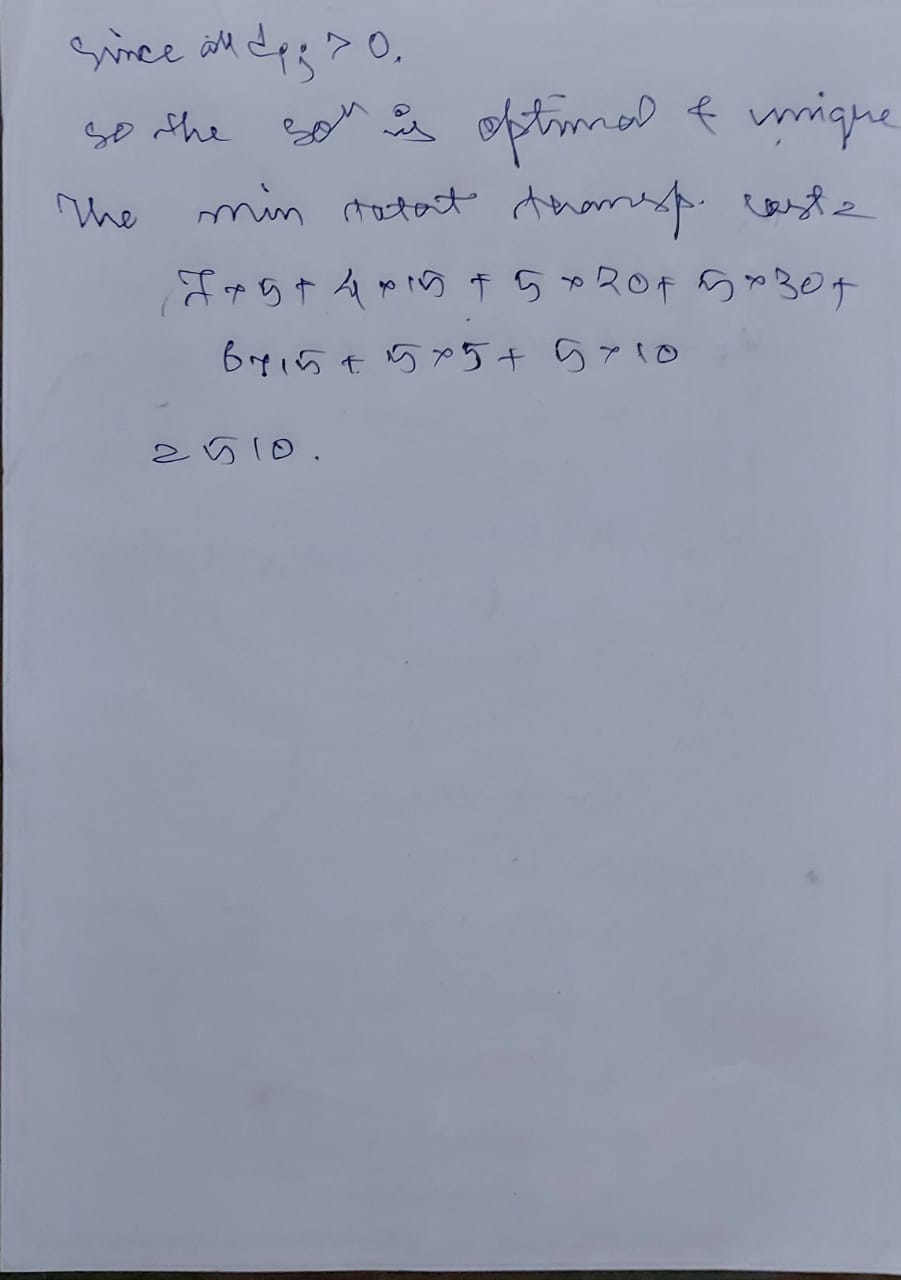 Since all dij > 0.
so the solⁿ is optimal & unique
The min total transp. cost =
7×5 + 4×15 + 5×20 + 5×30 +
6×15 + 5×5 + 5×10
= 510.